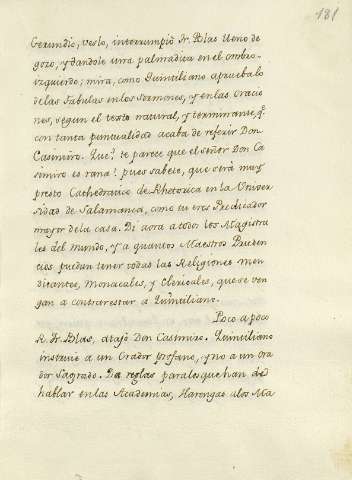 181
Gerundio, veslo, interrumpiò Fr. Blas lleno de
gozo, y dandole una palmadita en el ombro
izquierdo; mira, como Quintiliano aprueba lo
de las Fabulas en los Sermones, y en las Oracio
nes, segun el texto natural, y terminante, q.e
con tanta puntualidad acaba de referir Don
Casimiro. Que? te parece que el señor Don Ca
simiro es rana? pues sabete, que serà muy
presto Cathedratico de Rhetorica en la Univer
sidad de Salamanca, como tu eres Predicador
mayor de la casa. Di aora a todos los Magistra
les del mundo, y a quantos Maestros Pruden
cios puedan tener todas las Religiones Men
dicantes, Monacales, y Clericales, que se ven
gan a contrarestar a Quintiliano.
Poco a poco
R. Fr. Blas, atajò Don Casimiro. Quintiliano
instruie a un Orador profano, y no a un ora
dor Sagrado. Da reglas para los que han de
hablar en las Academias, Harengas a los Ma